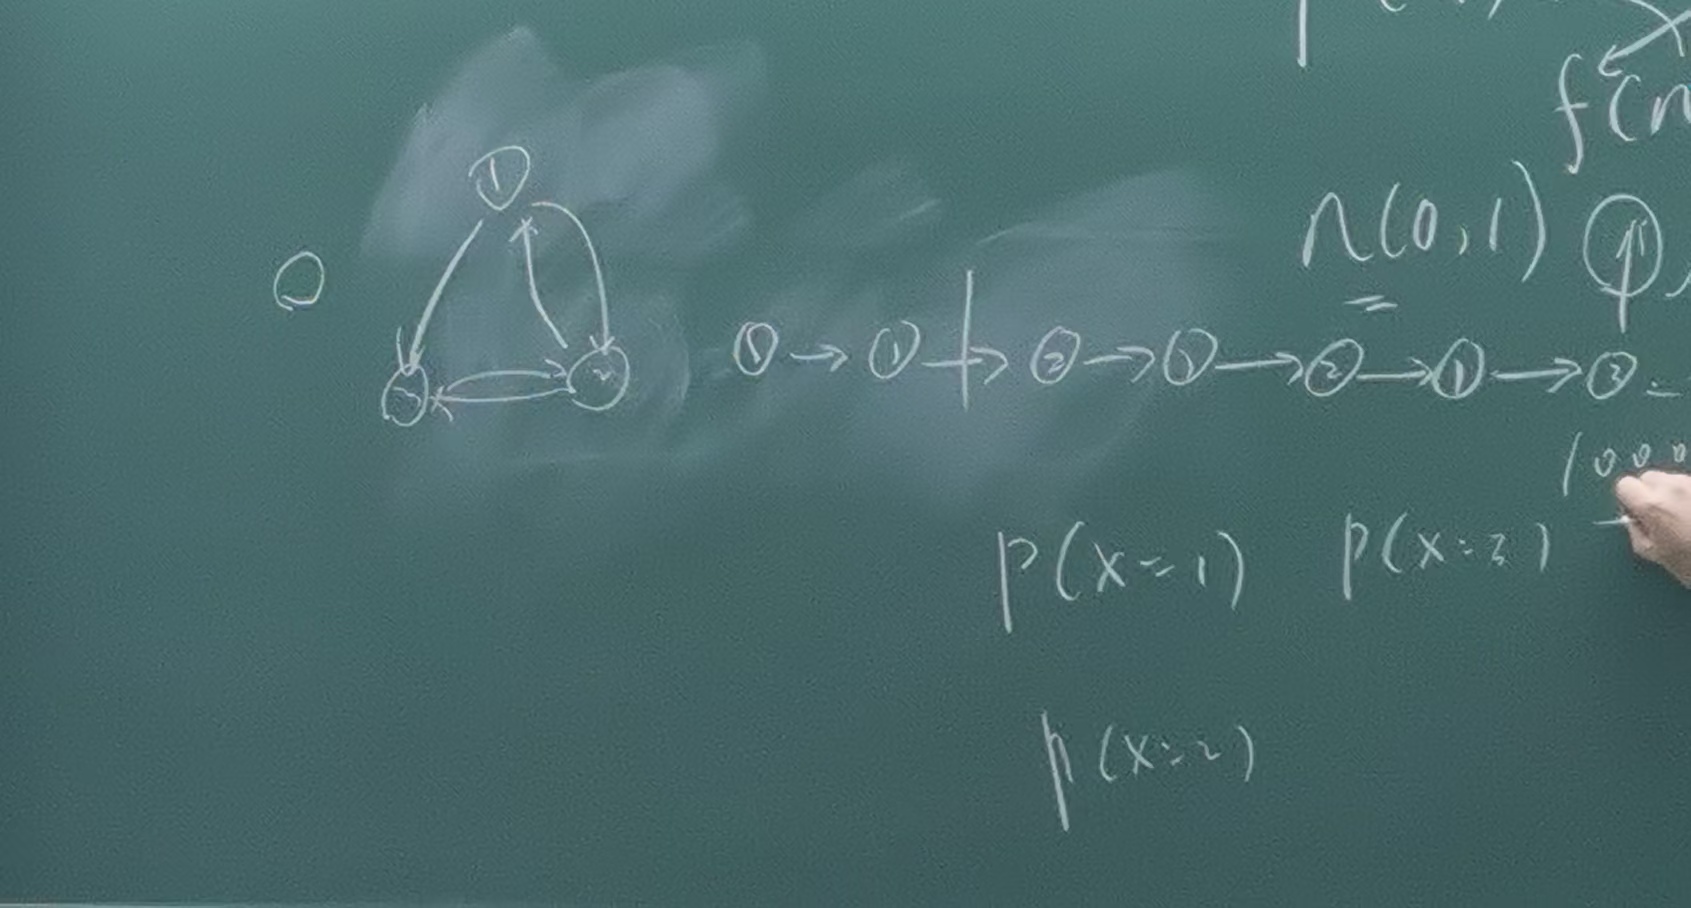 f(n
n(0,1)
①
③ ②
① → ① → ② → ① → ② → ① → ③
1000
p(x=1) p(x=3)
p(x=2)